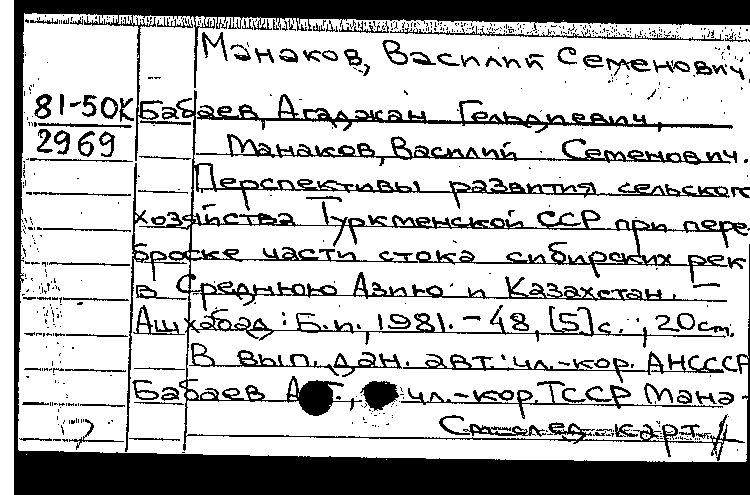 Манаков, Василий Семенович.
81-50К
2969
Бабаев, Агаджан Гельдиевич,
Манаков, Василий Семенович.
Перспективы развития сельского
хозяйства Туркменской ССР при пере-
броске части стока сибирских рек
в Среднюю Азию и Казахстан. —
Ашхабад: Б.и., 1981. – 48, [5] с.; 20 см.
В вып. дан. авт.: чл.-кор. АНСССР
Бабаев А. Г., чл.-кор. ТССР Мана-
См. след. карт.